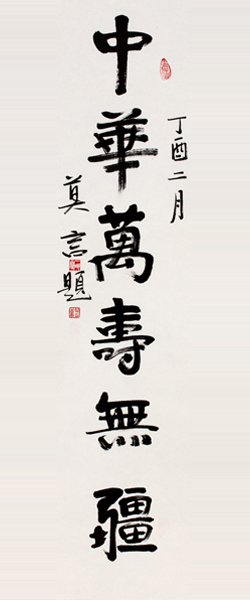 丁酉二月
中華萬壽無疆
莫言題